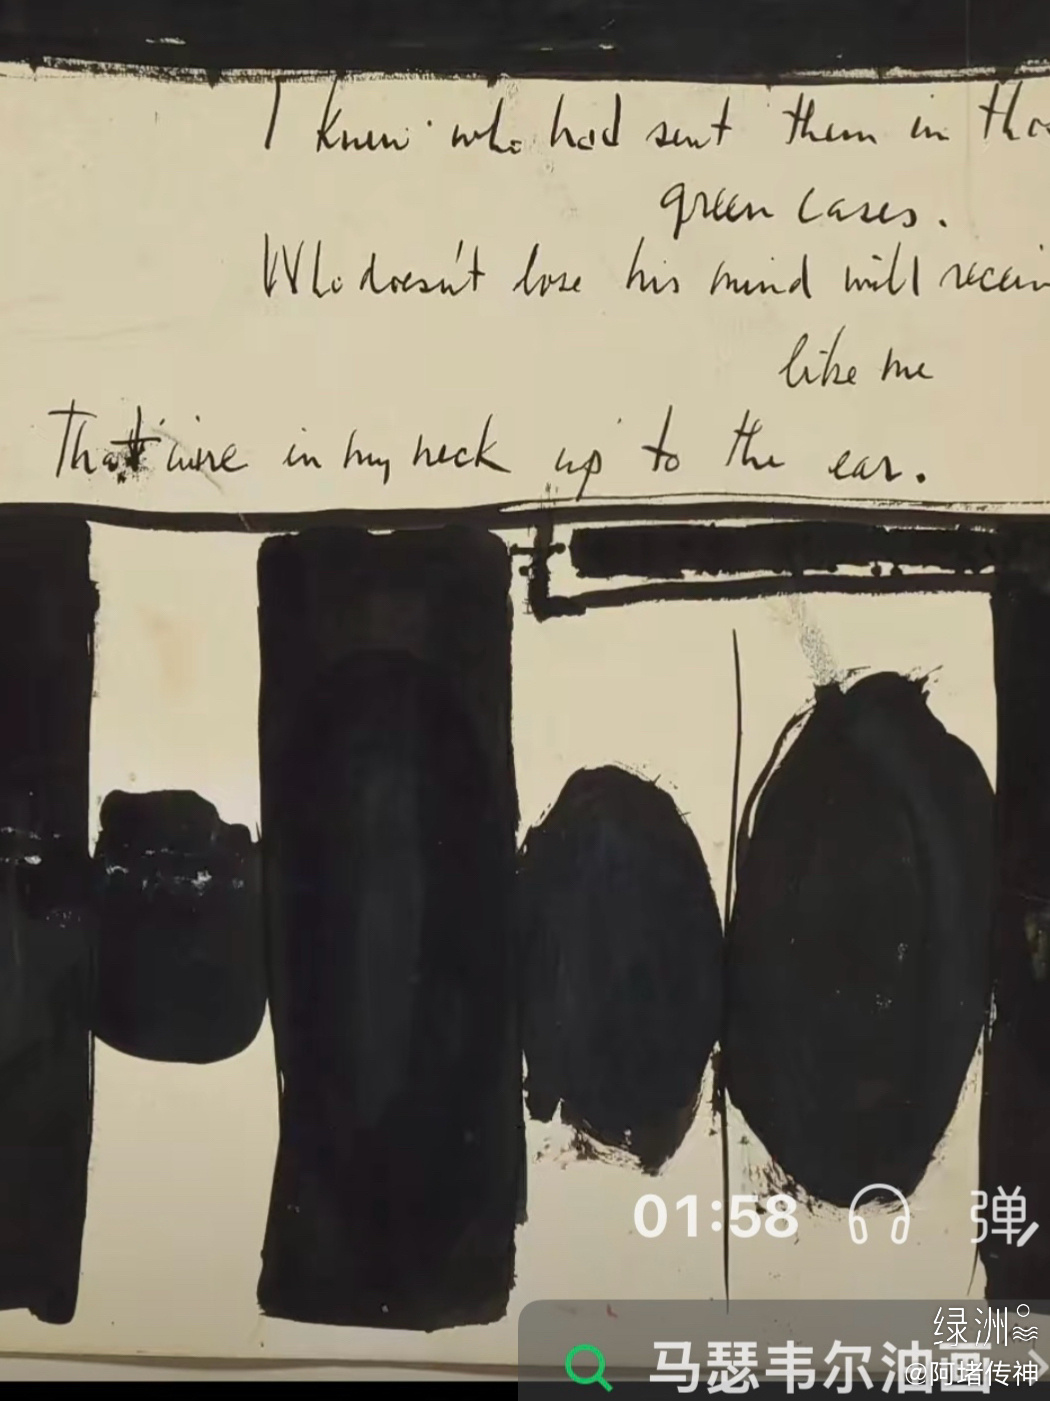 I knew who had sent them in
green cases.
Who doesn't lose his mind will
like me
That wire in my neck up to the ear.
01:58
弹
绿洲
马瑟韦尔油画
@阿堵传神